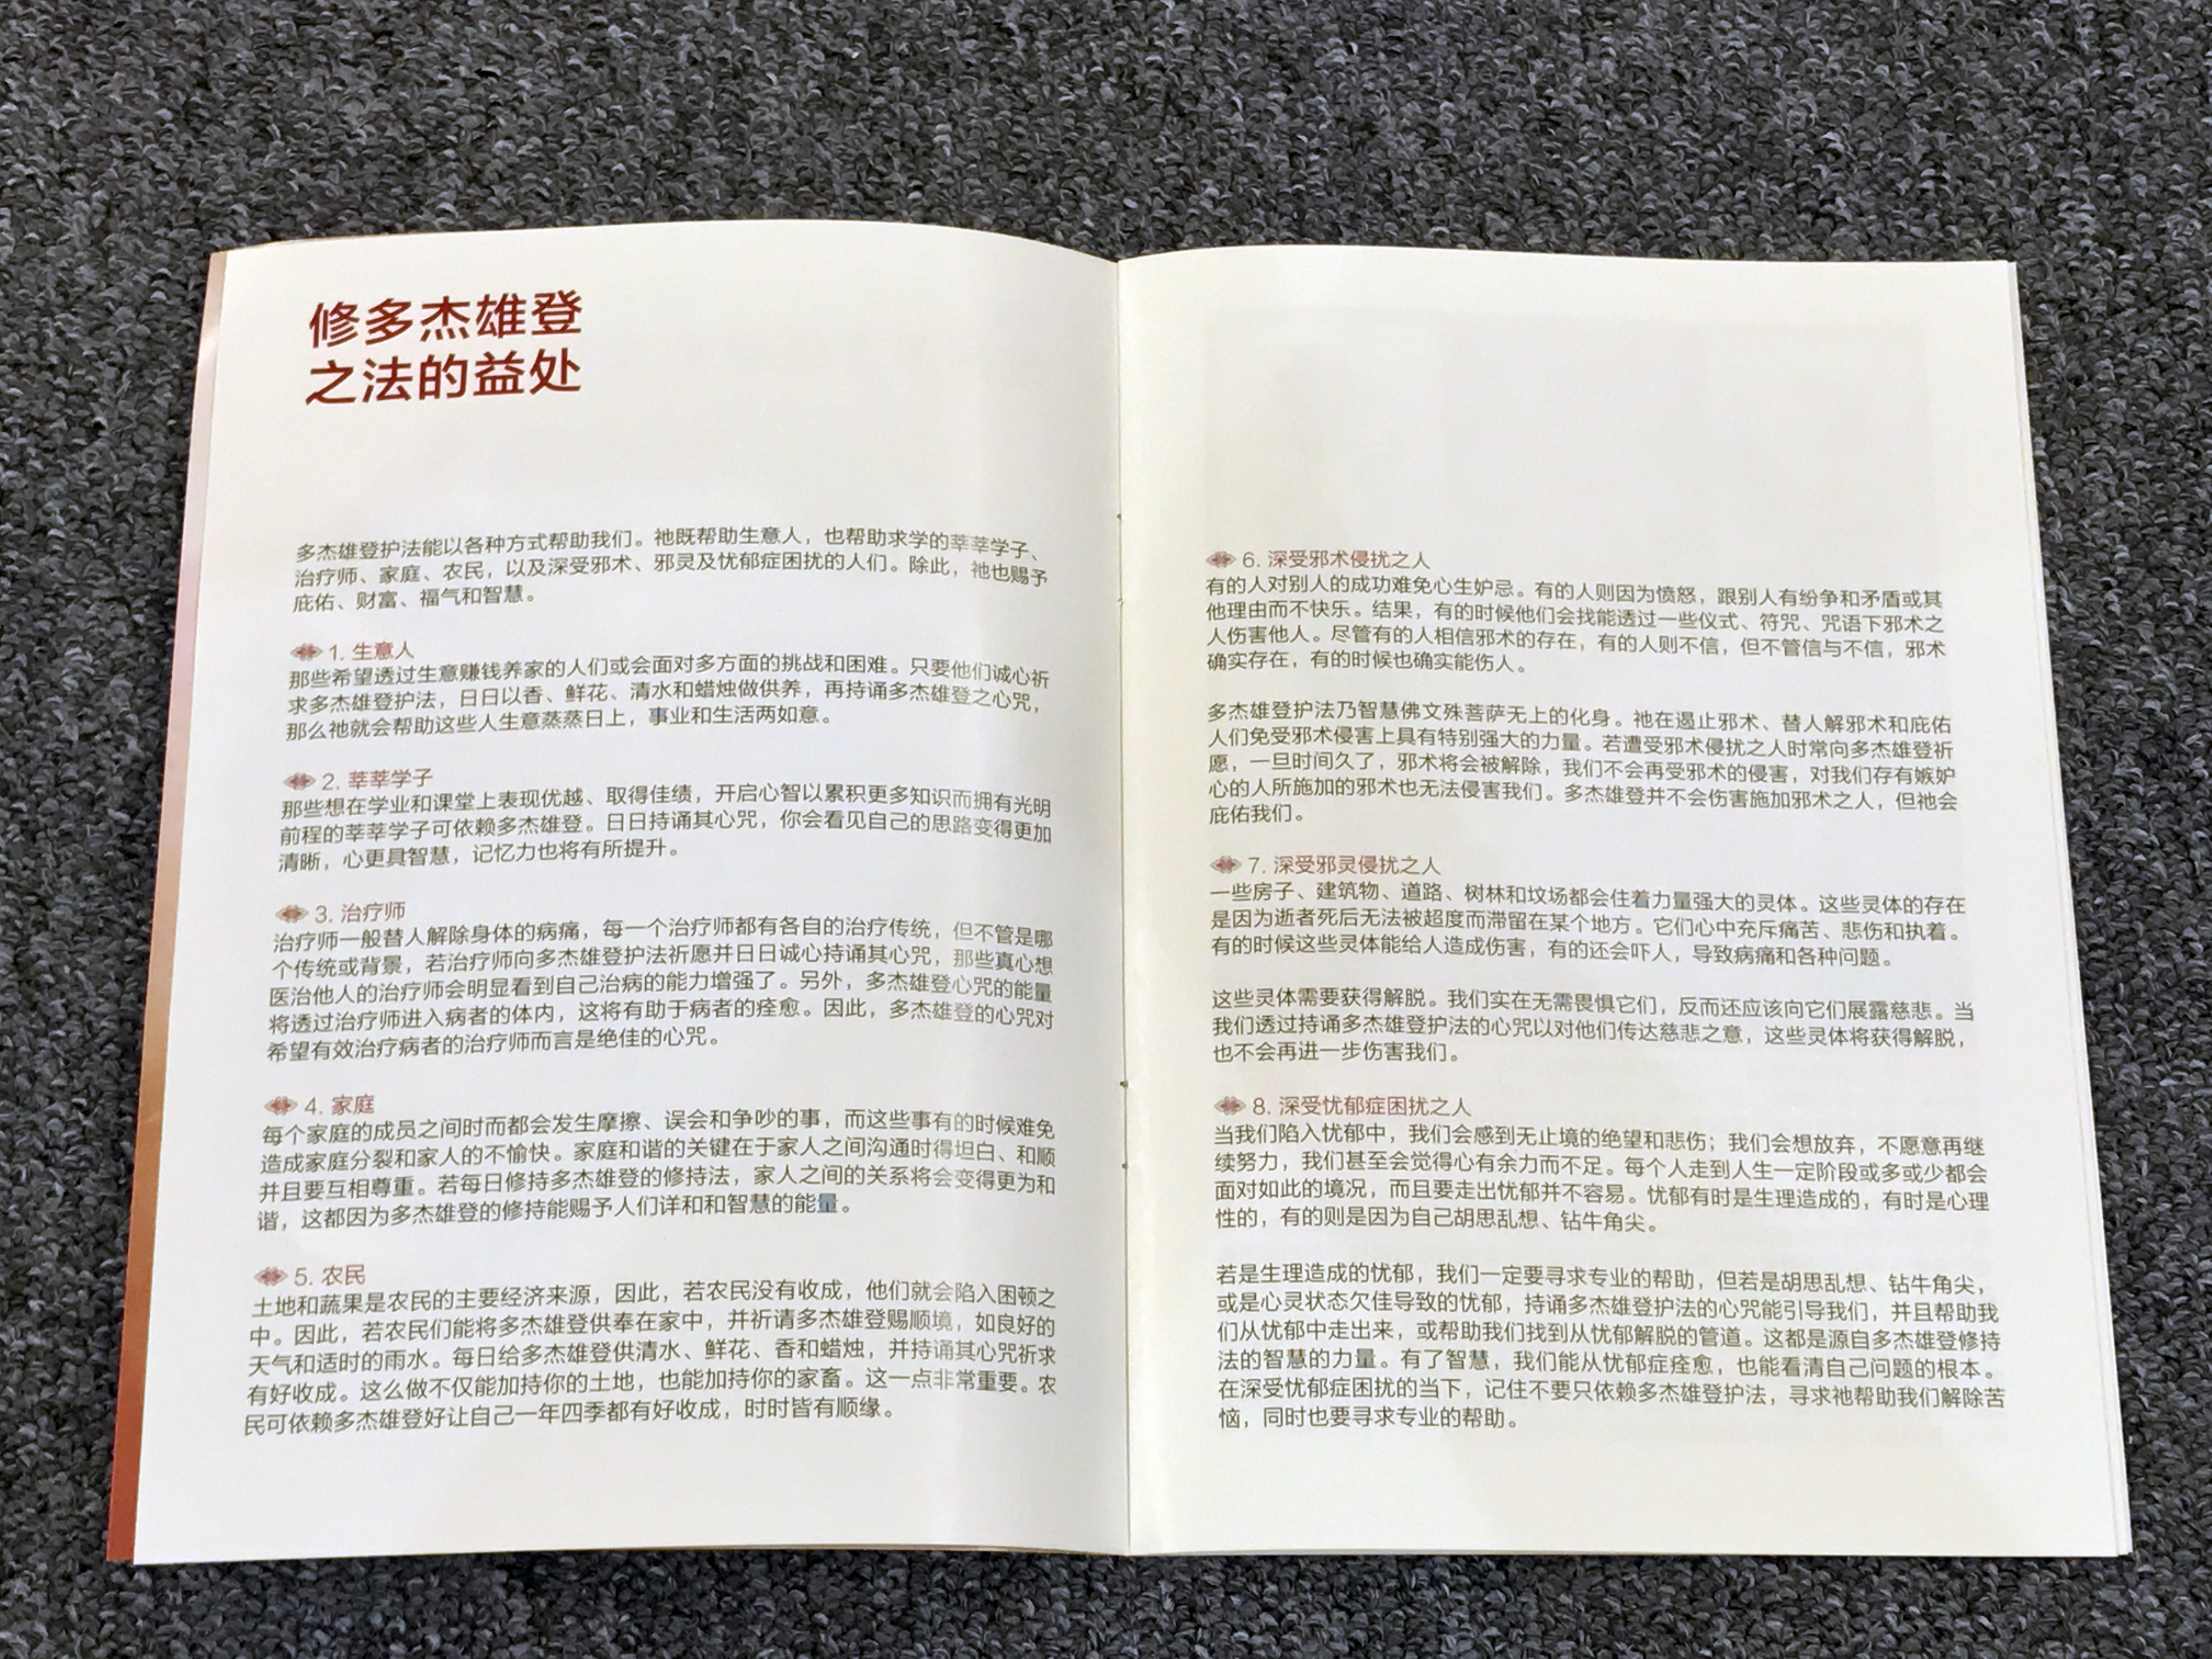 修多杰雄登
之法的益处
多杰雄登护法能以各种方式帮助我们。祂既帮助生意人，也帮助求学的莘莘学子、
治疗师、家庭、农民，以及深受邪术、邪灵及忧郁症困扰的人们。除此，祂也赐予
庇佑、财富、福气和智慧。
1. 生意人
那些希望透过生意赚钱养家的人们或会面对多方面的挑战和困难。只要他们诚心祈
求多杰雄登护法，日日以香、鲜花、清水和蜡烛做供养，再持诵多杰雄登之心咒，
那么祂就会帮助这些人生意蒸蒸日上，事业和生活两如意。
2. 莘莘学子
那些想在学业和课堂上表现优越、取得佳绩，开启心智以累积更多知识而拥有光明
前程的莘莘学子可依赖多杰雄登。日日持诵其心咒，你会看见自己的思路变得更加
清晰，心更具智慧，记忆力也将有所提升。
3. 治疗师
治疗师一般替人解除身体的病痛，每一个治疗师都有各自的治疗传统，但不管是哪
个传统或背景，若治疗师向多杰雄登护法祈愿并日日诚心持诵其心咒，那些真心想
医治他人的治疗师会明显看到自己治病的能力增强了。另外，多杰雄登心咒的能量
将透过治疗师进入病者的体内，这将有助于病者的痊愈。因此，多杰雄登的心咒对
希望有效治疗病者的治疗师而言是绝佳的心咒。
4. 家庭
每个家庭的成员之间时而都会发生摩擦、误会和争吵的事，而这些事有的时候难免
造成家庭分裂和家人的不愉快。家庭和谐的关键在于家人之间沟通时得坦白、和顺
并且要互相尊重。若每日修持多杰雄登的修持法，家人之间的关系将会变得更为和
谐，这都因为多杰雄登的修持能赐予人们详和和智慧的能量。
5. 农民
土地和蔬果是农民的主要经济来源，因此，若农民没有收成，他们就会陷入困顿之
中。因此，若农民们能将多杰雄登供奉在家中，并祈请多杰雄登赐顺境，如良好的
天气和适时的雨水。每日给多杰雄登供清水、鲜花、香和蜡烛，并持诵其心咒祈求
有好收成。这么做不仅能加持你的土地，也能加持你的家畜。这一点非常重要。农
民可依赖多杰雄登好让自己一年四季都有好收成，时时皆有顺缘。
6. 深受邪术侵扰之人
有的人对别人的成功难免心生妒忌。有的人则因为愤怒，跟别人有纷争和矛盾或其
他理由而不快乐。结果，有的时候他们会找能透过一些仪式、符咒、咒语下邪术之
人伤害他人。尽管有的人相信邪术的存在，有的人则不信，但不管信与不信，邪术
确实存在，有的时候也确实能伤人。
多杰雄登护法乃智慧佛文殊菩萨无上的化身。祂在遏止邪术、替人解邪术和庇佑
人们免受邪术侵害上具有特别强大的力量。若遭受邪术侵扰之人时常向多杰雄登祈
愿，一旦时间久了，邪术将会被解除，我们不会再受邪术的侵害，对我们存有嫉妒
心的人所施加的邪术也无法侵害我们。多杰雄登并不会伤害施加邪术之人，但祂会
庇佑我们。
7. 深受邪灵侵扰之人
一些房子、建筑物、道路、树林和坟场都会住着力量强大的灵体。这些灵体的存在
是因为逝者死后无法被超度而滞留在某个地方。它们心中充斥痛苦、悲伤和执着。
有的时候这些灵体能给人造成伤害，有的还会吓人，导致病痛和各种问题。
这些灵体需要获得解脱。我们实在无需畏惧它们，反而还应该向它们展露慈悲。当
我们透过持诵多杰雄登护法的心咒以对他们传达慈悲之意，这些灵体将获得解脱，
也不会再进一步伤害我们。
8. 深受忧郁症困扰之人
当我们陷入忧郁中，我们会感到无止境的绝望和悲伤；我们会想放弃，不愿意再继
续努力，我们甚至会觉得心有余力而不足。每个人走到人生一定阶段或多或少都会
面对如此的境况，而且要走出忧郁并不容易。忧郁有时是生理造成的，有时是心理
性的，有的则是因为自己胡思乱想、钻牛角尖。
若是生理造成的忧郁，我们一定要寻求专业的帮助，但若是胡思乱想、钻牛角尖，
或是心灵状态欠佳导致的忧郁，持诵多杰雄登护法的心咒能引导我们，并且帮助我
们从忧郁中走出来，或帮助我们找到从忧郁解脱的管道。这都是源自多杰雄登修持
法的智慧的力量。有了智慧，我们能从忧郁症痊愈，也能看清自己问题的根本。
在深受忧郁症困扰的当下，记住不要只依赖多杰雄登护法，寻求祂帮助我们解除苦
恼，同时也要寻求专业的帮助。